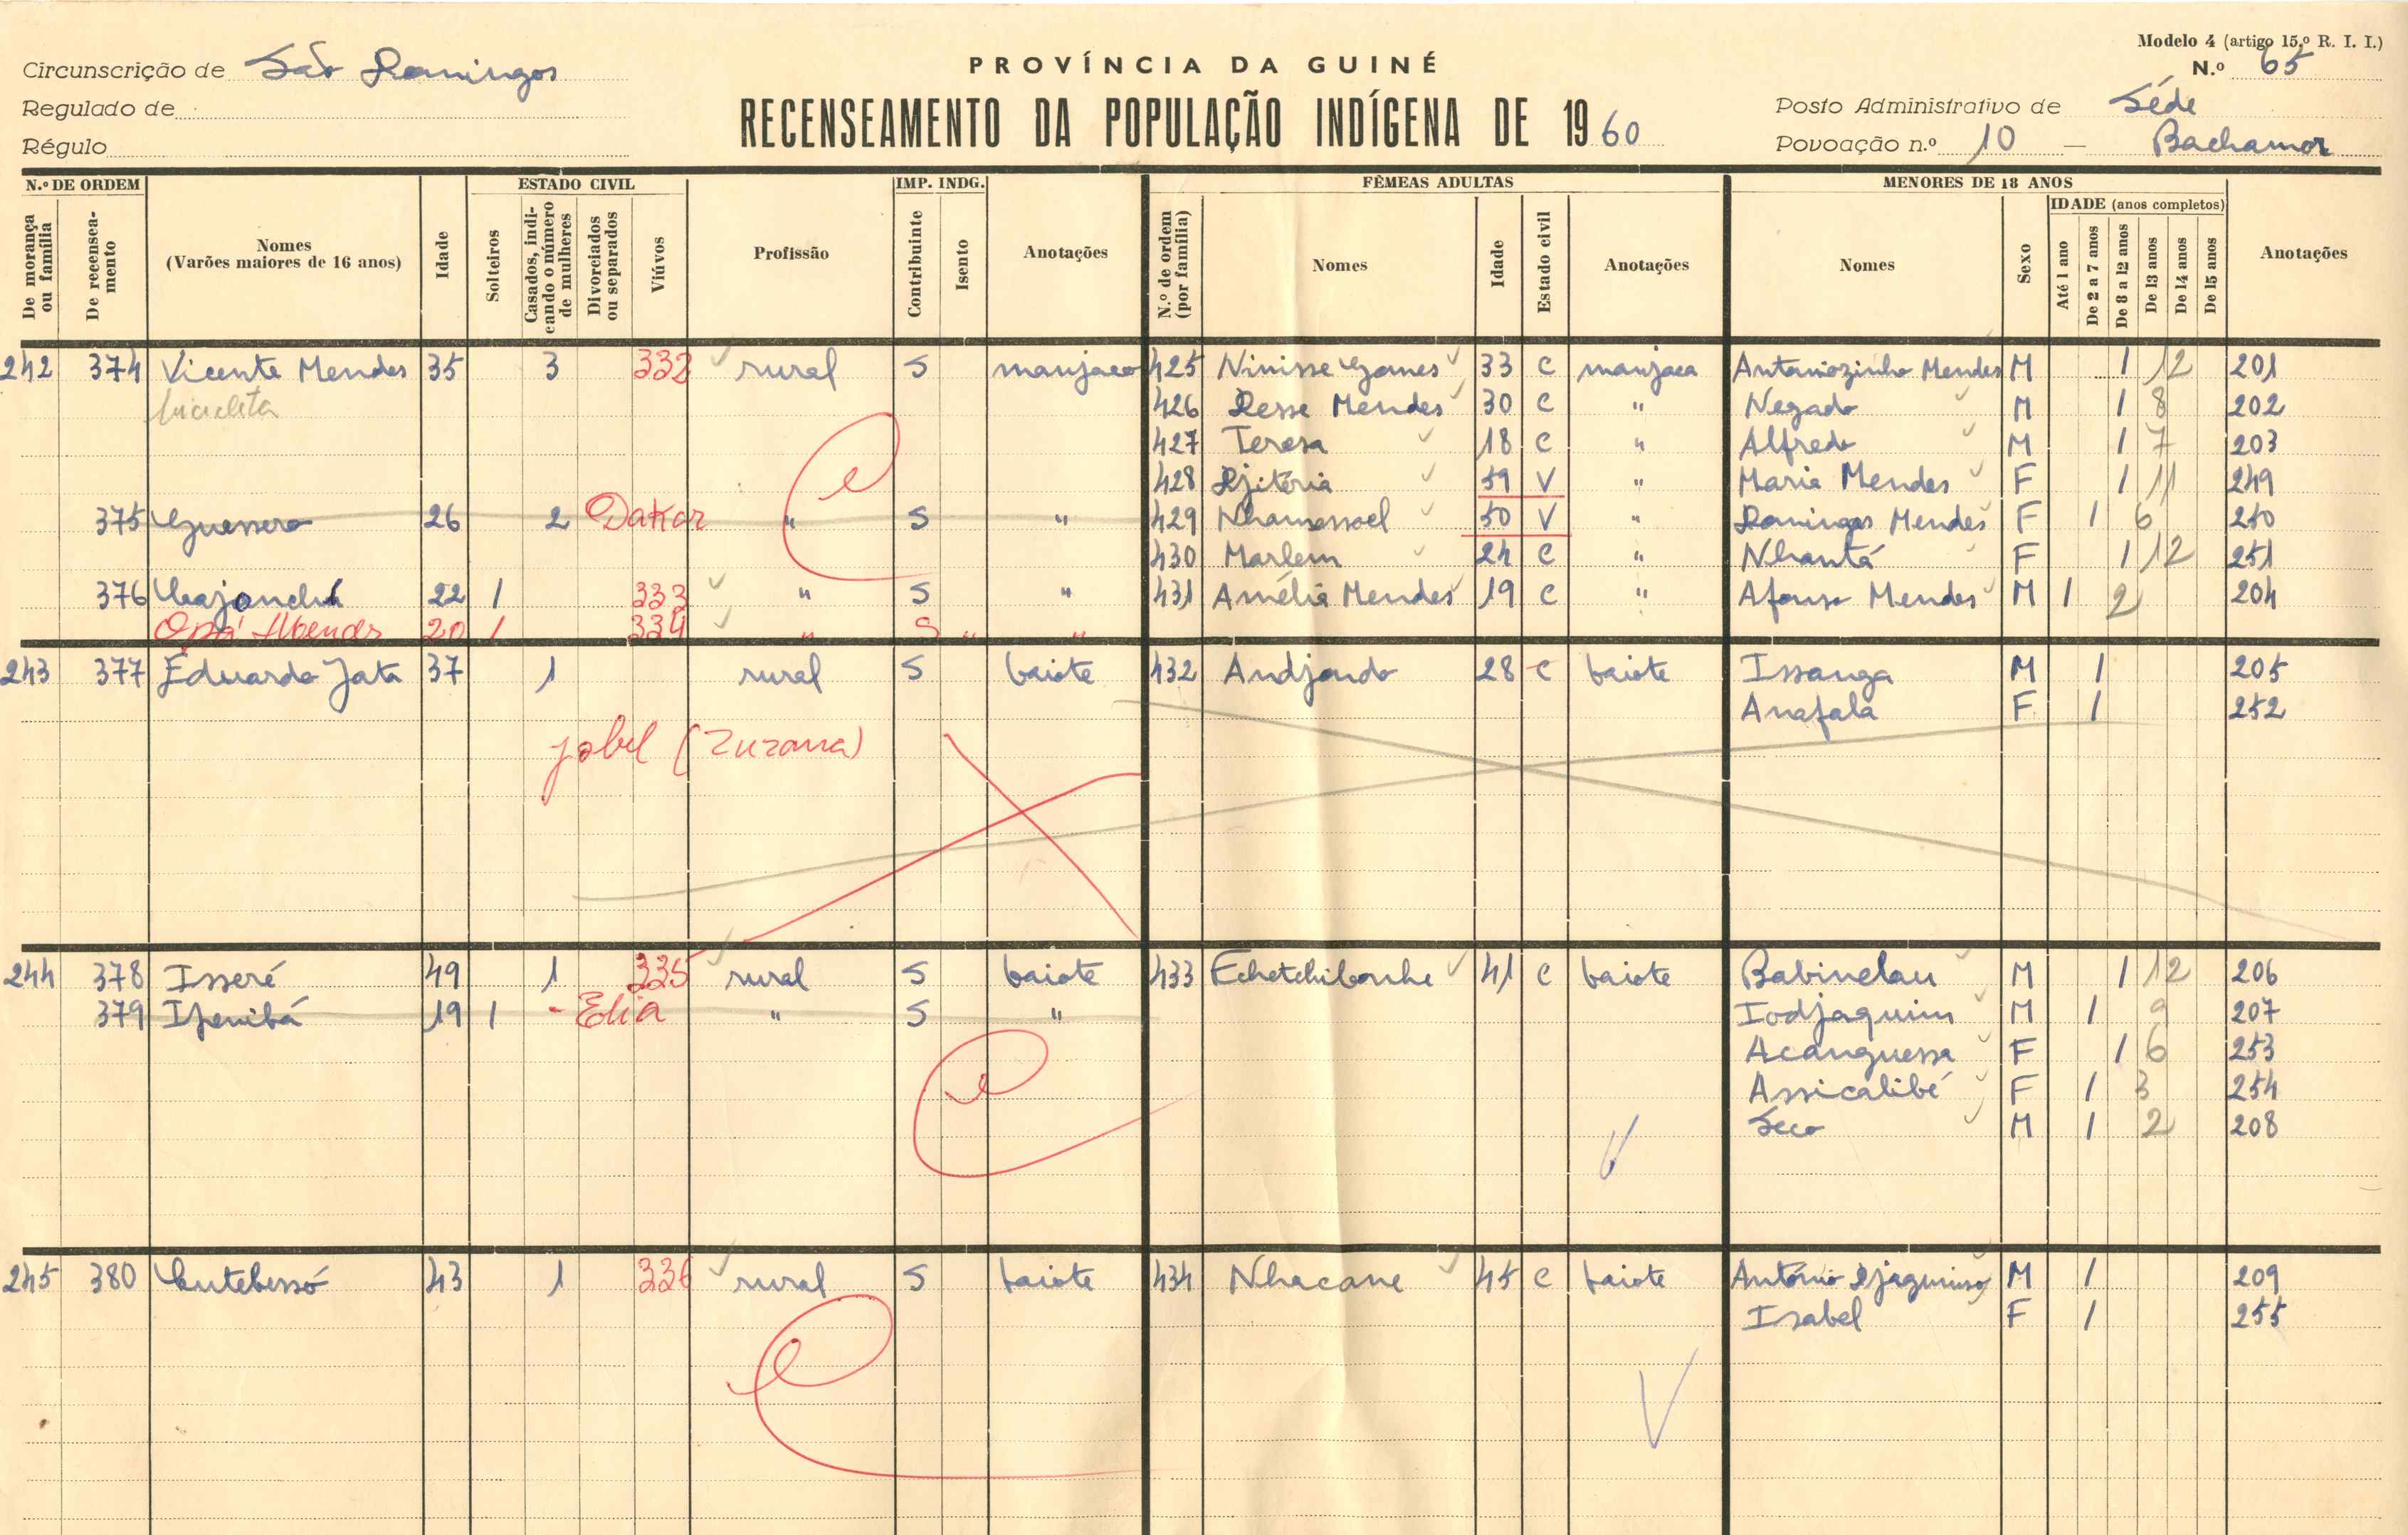 Modelo 4 (artigo 15.º R. I. I.)
Circunscrição de São Domingos
PROVÍNCIA DA GUINÉ
N.º 65
Regulado de
RECENSEAMENTO DA POPULAÇÃO INDÍGENA DE 1960
Posto Administrativo de Séde
Régulo
Povoação n.º 10 — Bachamor
N.º DE ORDEM ESTADO CIVIL IMP. INDG. FÊMEAS ADULTAS MENORES DE 18 ANOS
De morança ou família
De recenseamento
Nomes
(Varões maiores de 16 anos)
Idade
Solteiros
Casados, indicando o número de mulheres
Divorciados ou separados
Viúvos
Profissão
Contribuinte
Isento
Anotações
N.º de ordem (por família)
Nomes
Idade
Estado civil
Anotações
Nomes
Sexo
IDADE (anos completos)
Até 1 ano
De 2 a 7 anos
De 8 a 12 anos
De 13 anos
De 14 anos
De 15 anos
Anotações
242 374 Vicente Mendes 35 3 332 rural S manjaco 425 Ninisse Gomes 33 C manjaca Antoniozinho Mendes M 1 12 201
bicicleta 426 Desse Mendes 30 C " Negado M 1 8 202
427 Teresa 18 C " Alfredo M 1 7 203
428 Djitória 59 V " Maria Mendes F 1 11 249
375 Guessero 26 2 Dakar " S " 429 Nhamessoel 50 V " Domingas Mendes F 1 6 250
430 Marlem 24 C " Nhantá F 1 12 251
376 22 1 333 " S " 431 Amélia Mendes 19 C " Afonso Mendes M 1 2 204
Opá Mendes 20 1 334 " S " "
243 377 Eduardo Jata 37 1 rural S baiote 432 Andjondo 28 C baiote Issanga M 1 205
Anafala F 1 252
jobel (Zuzana)
244 378 Isseré 49 1 335 rural S baiote 433 Echetchibonhe 41 C baiote Babinelau M 1 12 206
379 Ifenibá 19 1 - Elia " S " Iodjaquim M 1 9 207
Acanguessa F 1 6 253
Assicalibé F 1 3 254
Seco M 1 2 208
245 380 Cutebessó 43 1 336 rural S baiote 434 Nhacane 45 C baiote António M 1 209
Isabel F 1 255